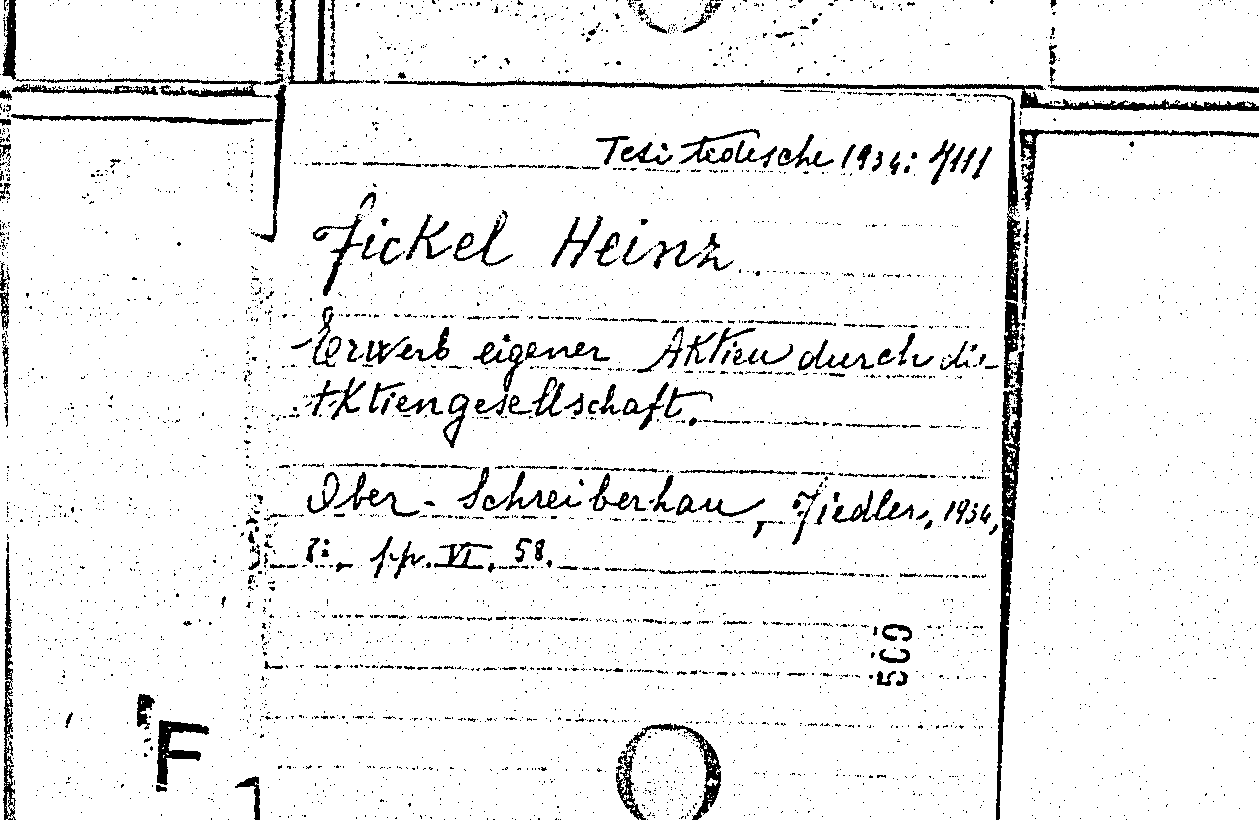 Tesi tedesche 1934: 4/111
Fickel Heinz
Erwerb eigener Aktien durch die
Aktiengesellschaft.
Ober-Schreiberhau, Fiedler, 1934,
8i. pp. VI. 58.
509
F